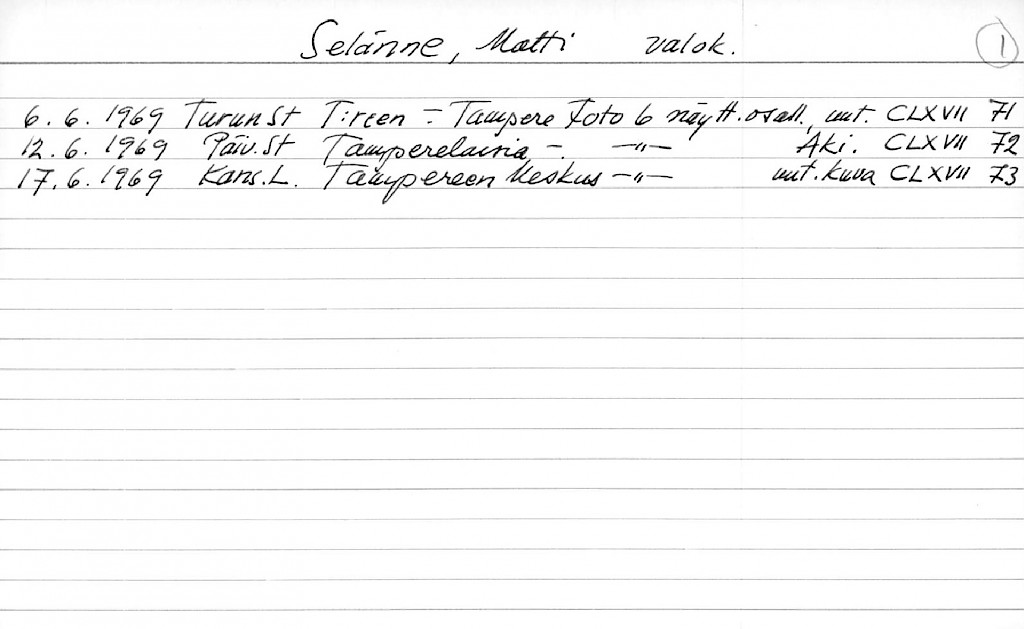 Selänne, Matti valok. 1
6.6.1969 Turun St T:reen - Tampere Foto 6 näytt. osall., mt. CLXVII 71
12.6.1969 Päiv. St Tamperelaisia - -"- Aki. CLXVII 72
17.6.1969 Kans. L. Tampereen Keskus -"- mt. kuva CLXVII 73